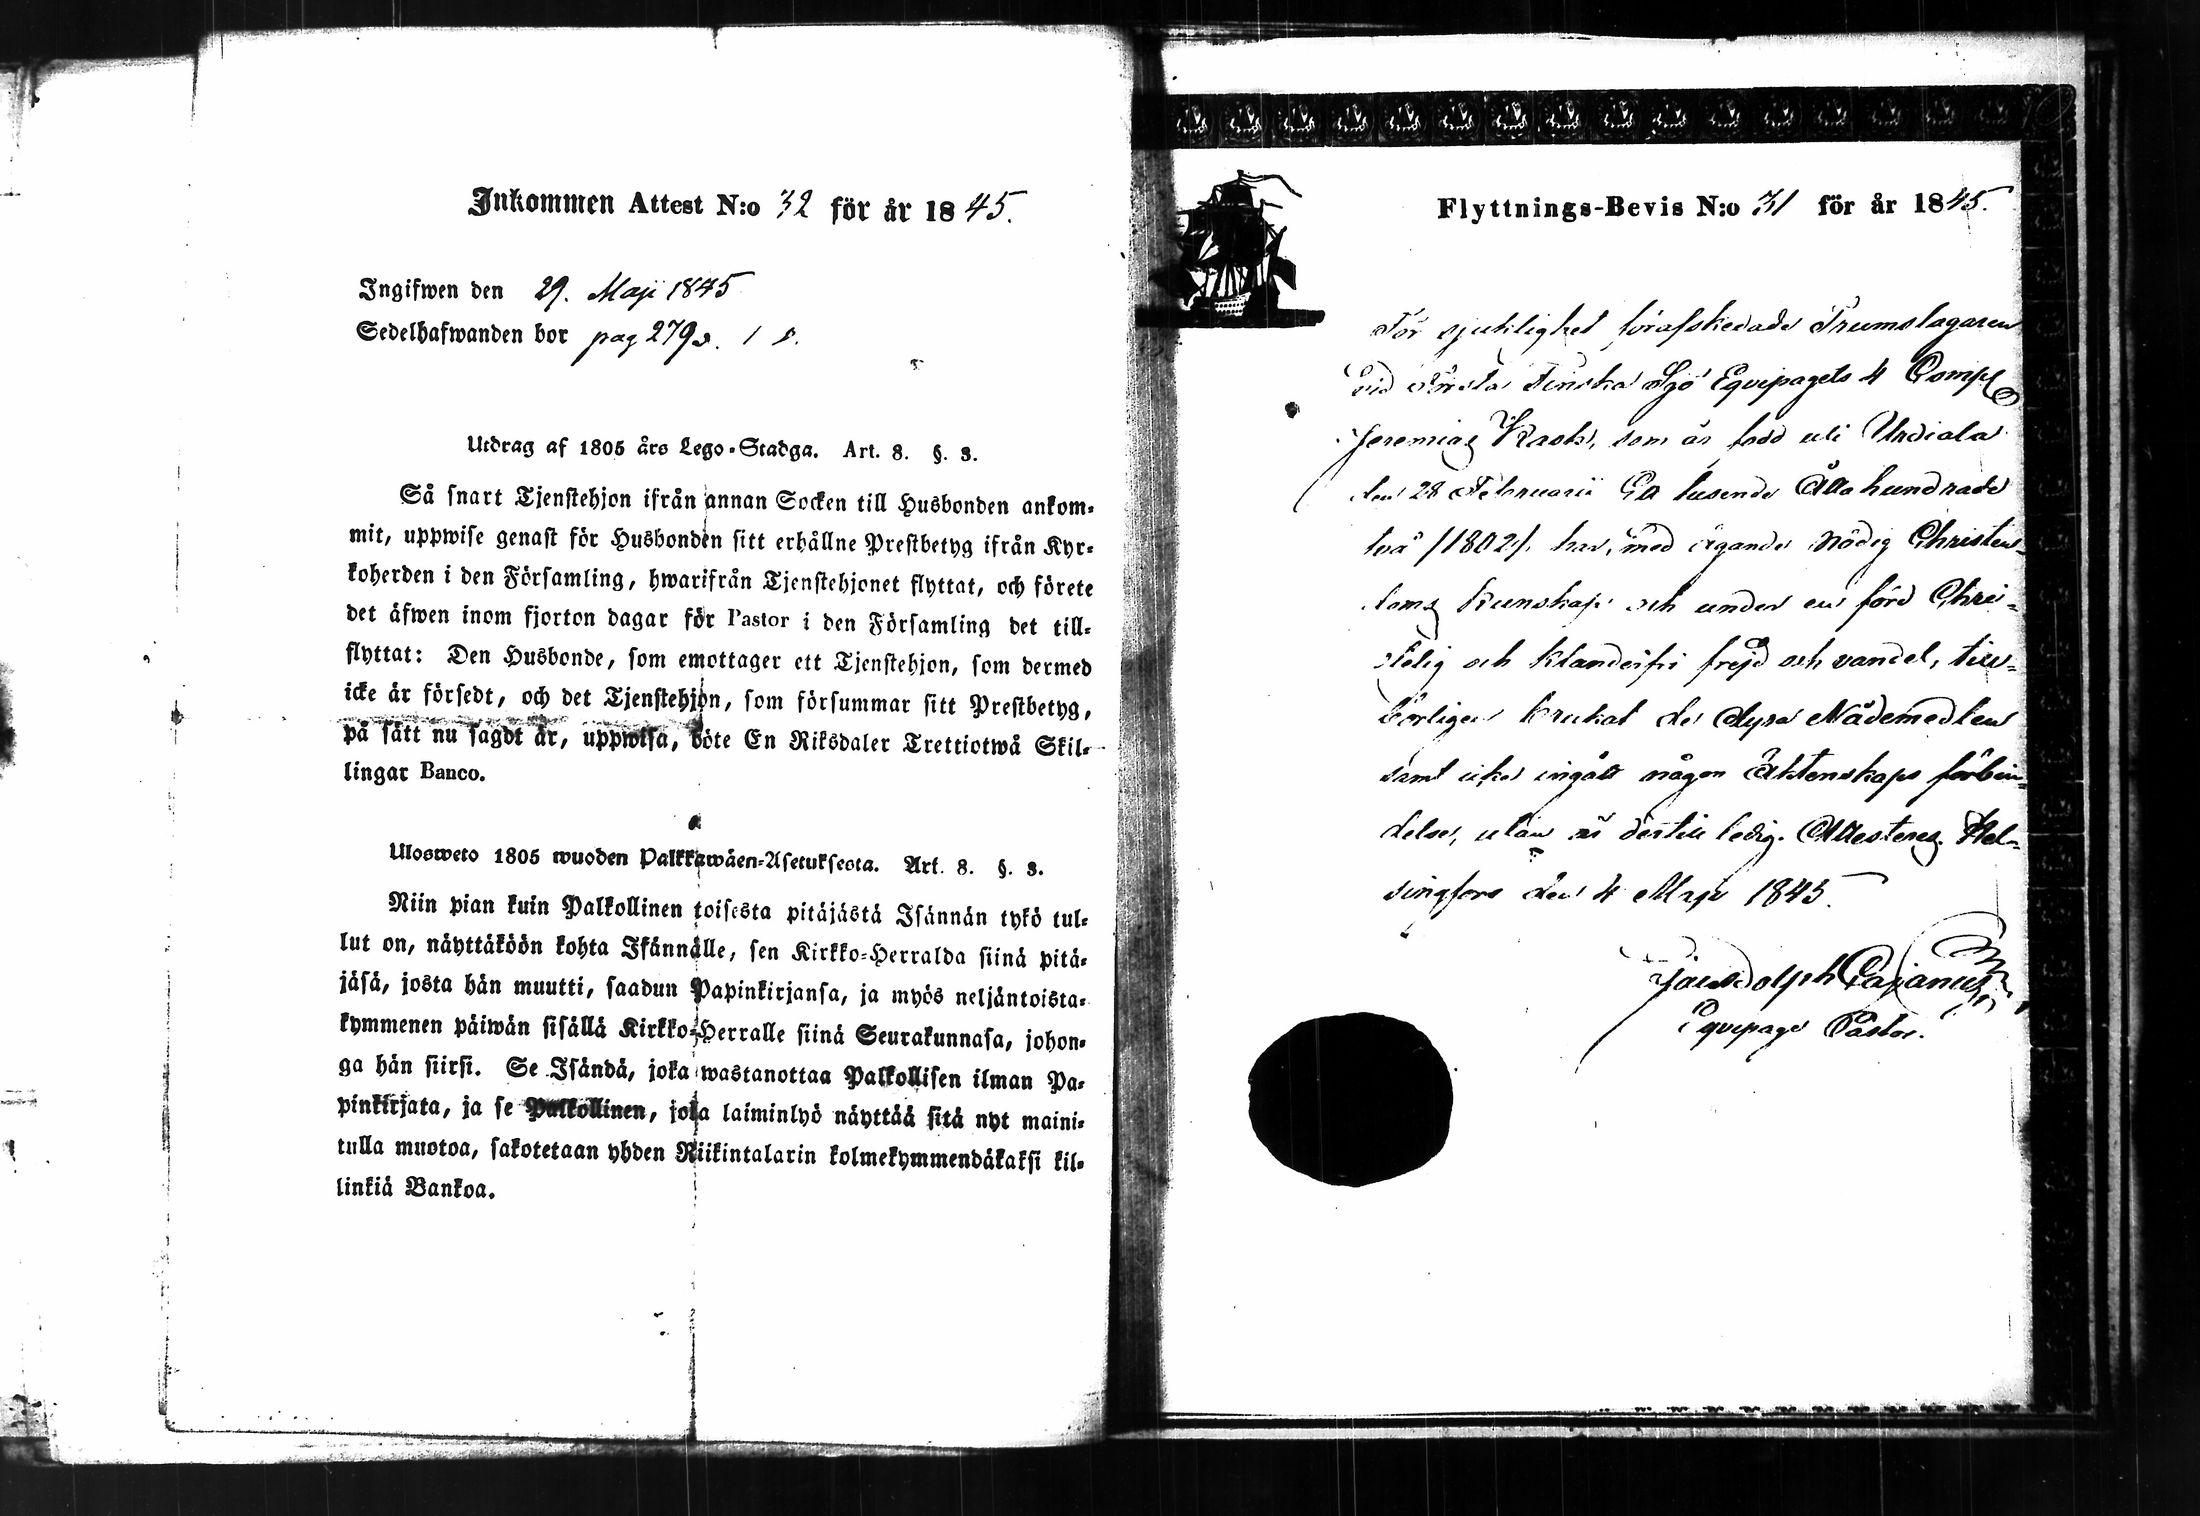 Inkommen Attest N:o 32 för år 1845.
Ingifwen den 29. Maji 1845
Sedelhafwanden bor pag 279
Utdrag af 1805 års Lego-Stadga. Art. 8. §. 3.
Så snart Tjenstehjon ifrån annan Socken till Husbonden ankom-
mit, uppwise genast för Husbonden sitt erhållne Prestbetyg ifrån Kyr-
koherden i den Församling, hwarifrån Tjenstehjonet flyttat, och förete
det äfwen inom fjorton dagar för Pastor i den Församling det till-
flyttat: Den Husbonde, som emottager ett Tjenstehjon, som dermed
icke är försedt, och det Tjenstehjon, som försummar sitt Prestbetyg,
på sätt nu sagdt är, uppwisa, böte En Riksdaler Trettiotwå Skil-
lingar Banco.
Ulosweto 1805 wuoden Palkkawäen-Asetuksesta. Art. 8. §. 3.
Niin pian kuin Palkollinen toisesta pitäjästä Isännän tykö tul-
lut on, näyttäköön kohta Isännälle, sen Kirkko-Herralda siinä pitä-
jäsä, josta hän muutti, saadun Papinkirjansa, ja myös neljäntoista-
kymmenen päiwän sisällä Kirkko-Herralle siinä Seurakunnasa, johon-
ga hän siirsi. Se Isändä, joka wastanottaa Palkollisen ilman Pa-
pinkirjata, ja se Palkollinen, joka laiminlyö näyttää sitä nyt maini-
tulla muotoa, sakotetaan yhden Riikintalarin kolmekymmendäkaksi kil-
linkiä Bankoa.
Flyttnings-Bevis N:o 31 för år 1845.
För sjuklighet förafskedade Trumslagaren
vid Första Finska Sjö Equipagets 4 Comp
Jeremias Rask, som är född uti Urdiala
den 28 Februarii Ett tusende Åtta hundrade
två /1802/, har, med ägande nödig Christen-
doms kunskap och under en förd Chri-
stelig och klanderfri frejd och vandel, till-
börligen brukat de dyra Nådemedlen
samt icke ingått någon Äktenskaps förbin-
delse, utan är dertill ledig. Attesteras. Hel-
singfors den 4 Maji 1845.
Adolph Cajanus
Equipage Pastor.